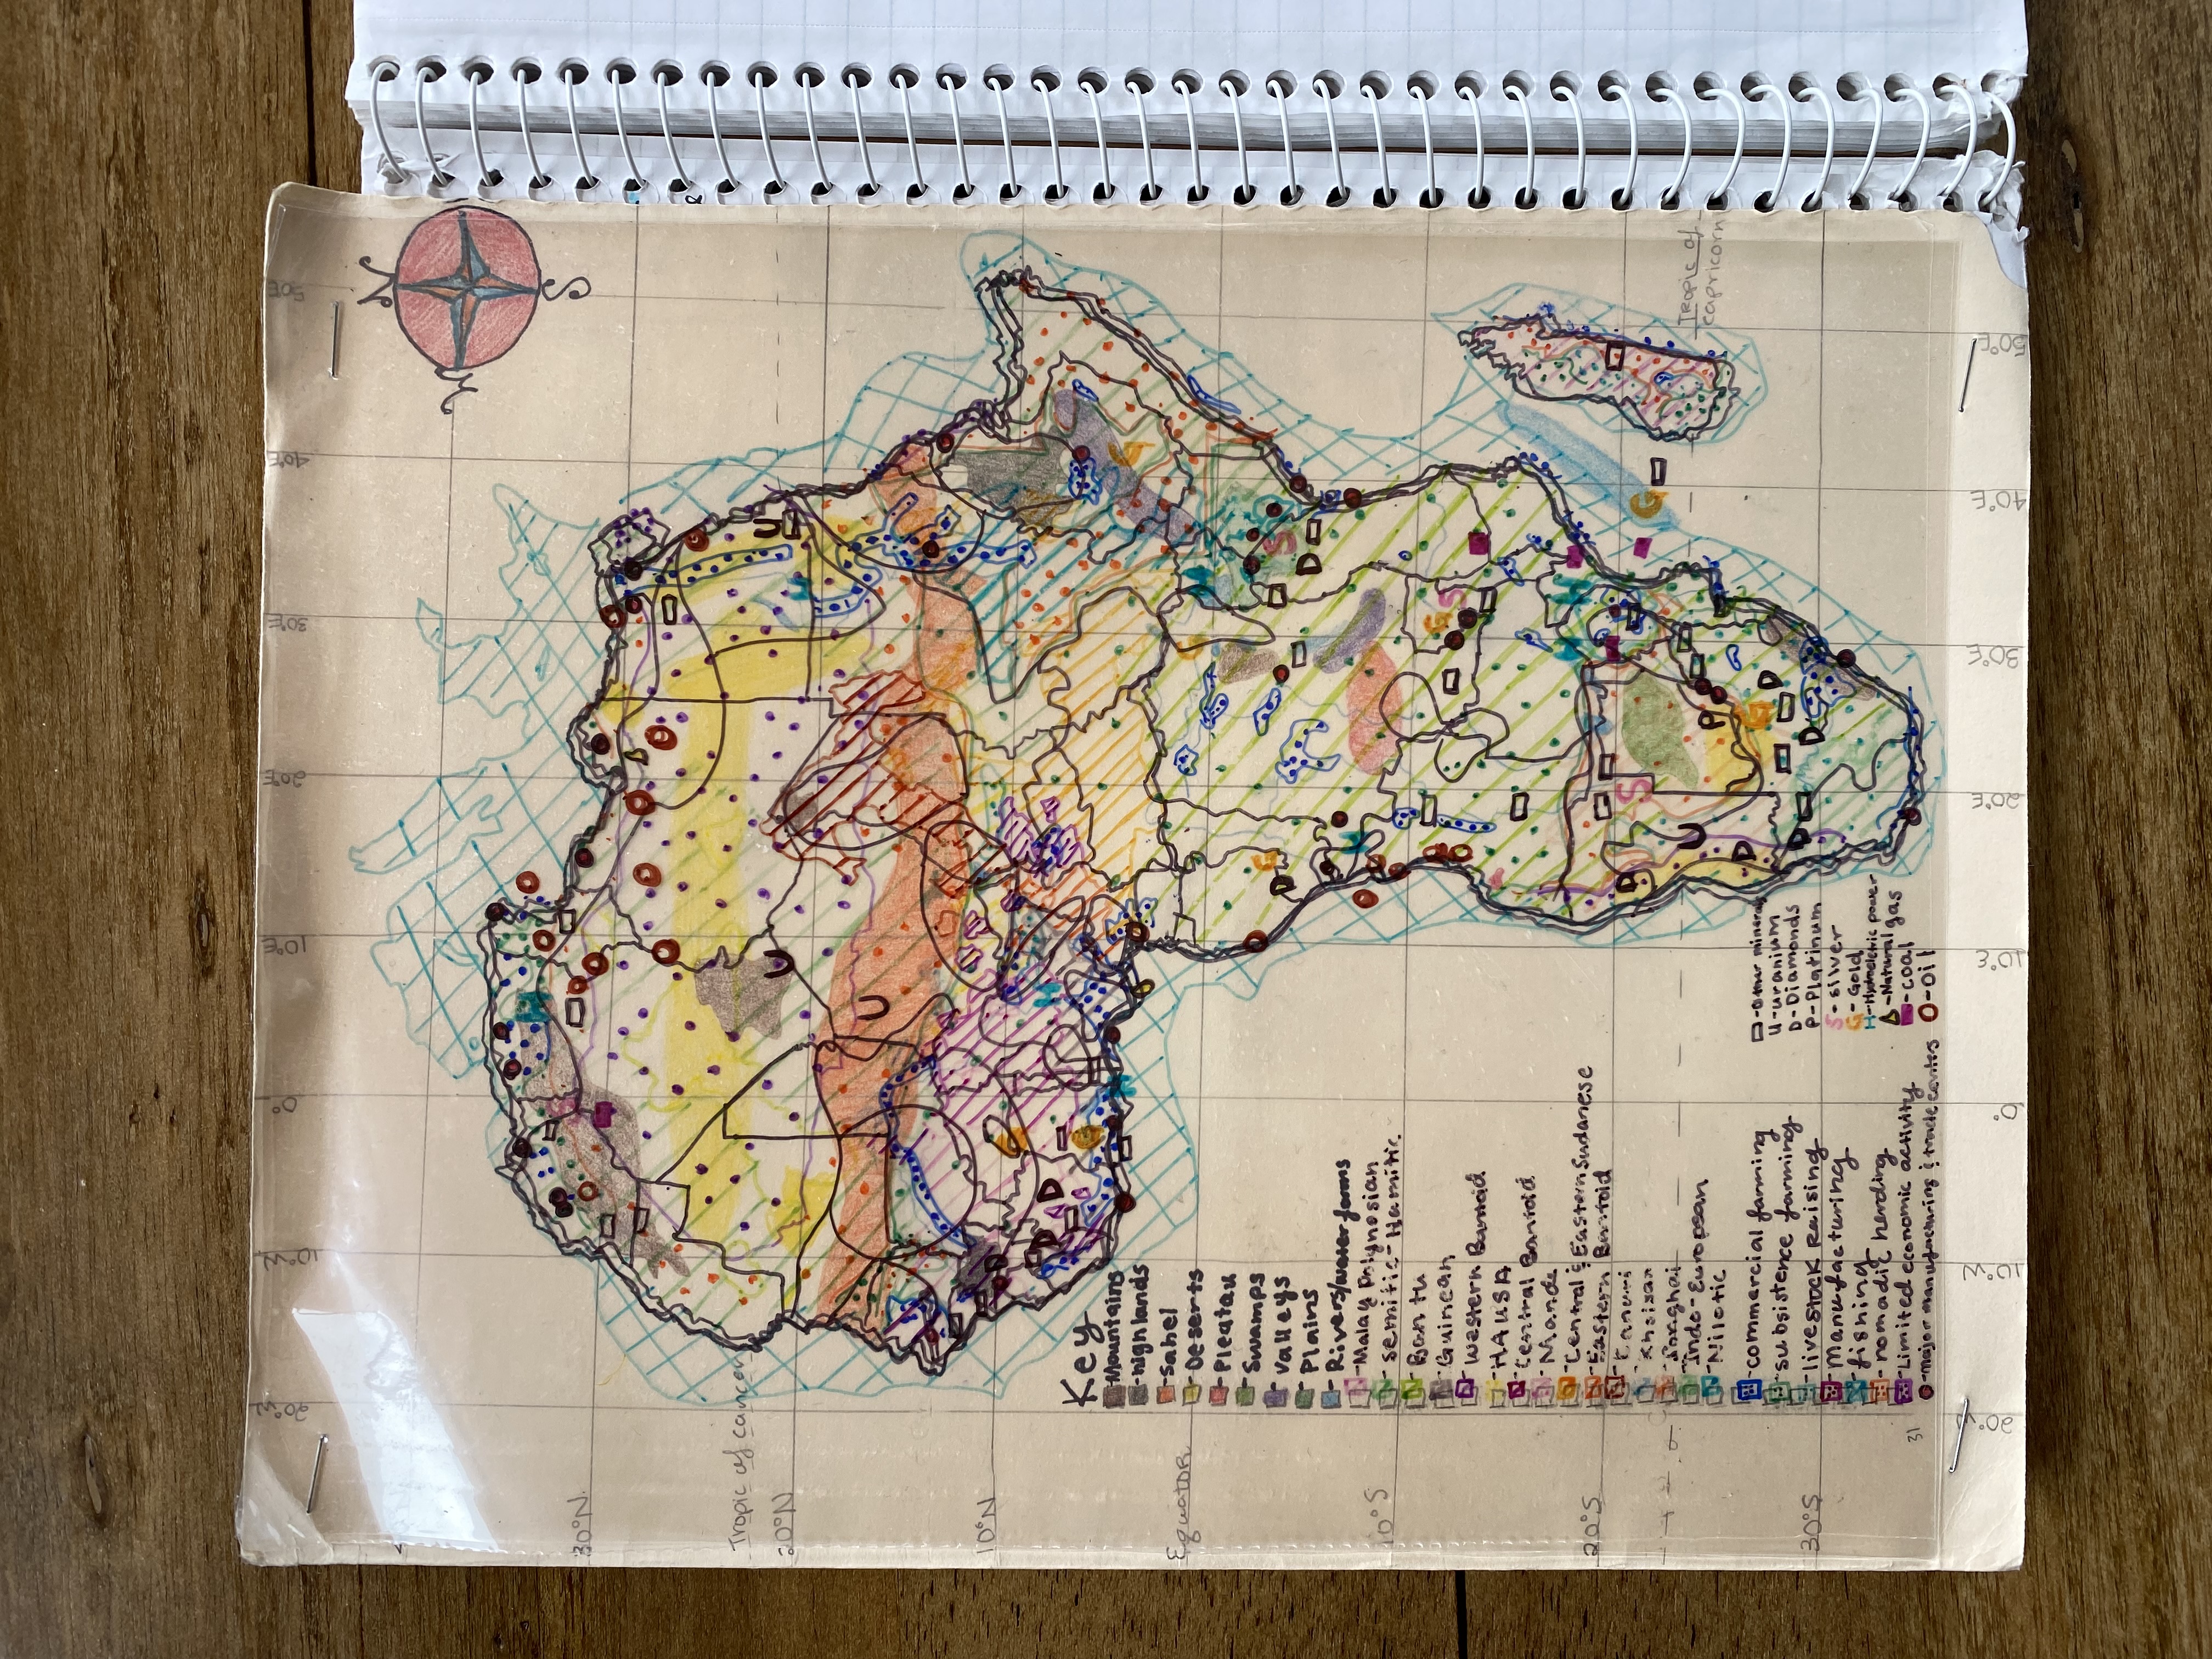 20°W 10°W 0° 10°E 20°E 30°E 40°E 50°E
N
W
S
30°N
Tropic of cancer
20°N
10°N
Equator
10°S
20°S
30°S
Tropic of
capricorn
Key
Mountains
-highlands
-Sahel
-Deserts
-Pleatau
Swamps
-valleys
Plains
-Rivers/water forms
-Malay Polynosian
-Semitic-Hamitic
-Bantu
-Guinean
-Western Bantoid
-HAUSA
-Central Bantoid
-Mande
-Central & Eastern Sudanese
-Eastern Bantoid
-Kanuri
-Khoisan
-Songhai
-Indo-European
-Nilotic
-commercial farming
-subsistence farming
-livestock Raising
-Manufacturing
-fishing
-nomadic herding
-Limited economic activity
-major manufacturing & trade centers
-Other minerals
U-uranium
D-Diamonds
P-Platinum
S-silver
G-Gold
H-Hydroeletric power
-Natural gas
-coal
-oil
U
U
U
H
H
D
D
D
H
H
H
G
D
S
D
H
G
S
H
H
D
S
G
U
P
D
G
D
D
D
31
20°W 10°W 0° 10°E 20°E 30°E 40°E 50°E